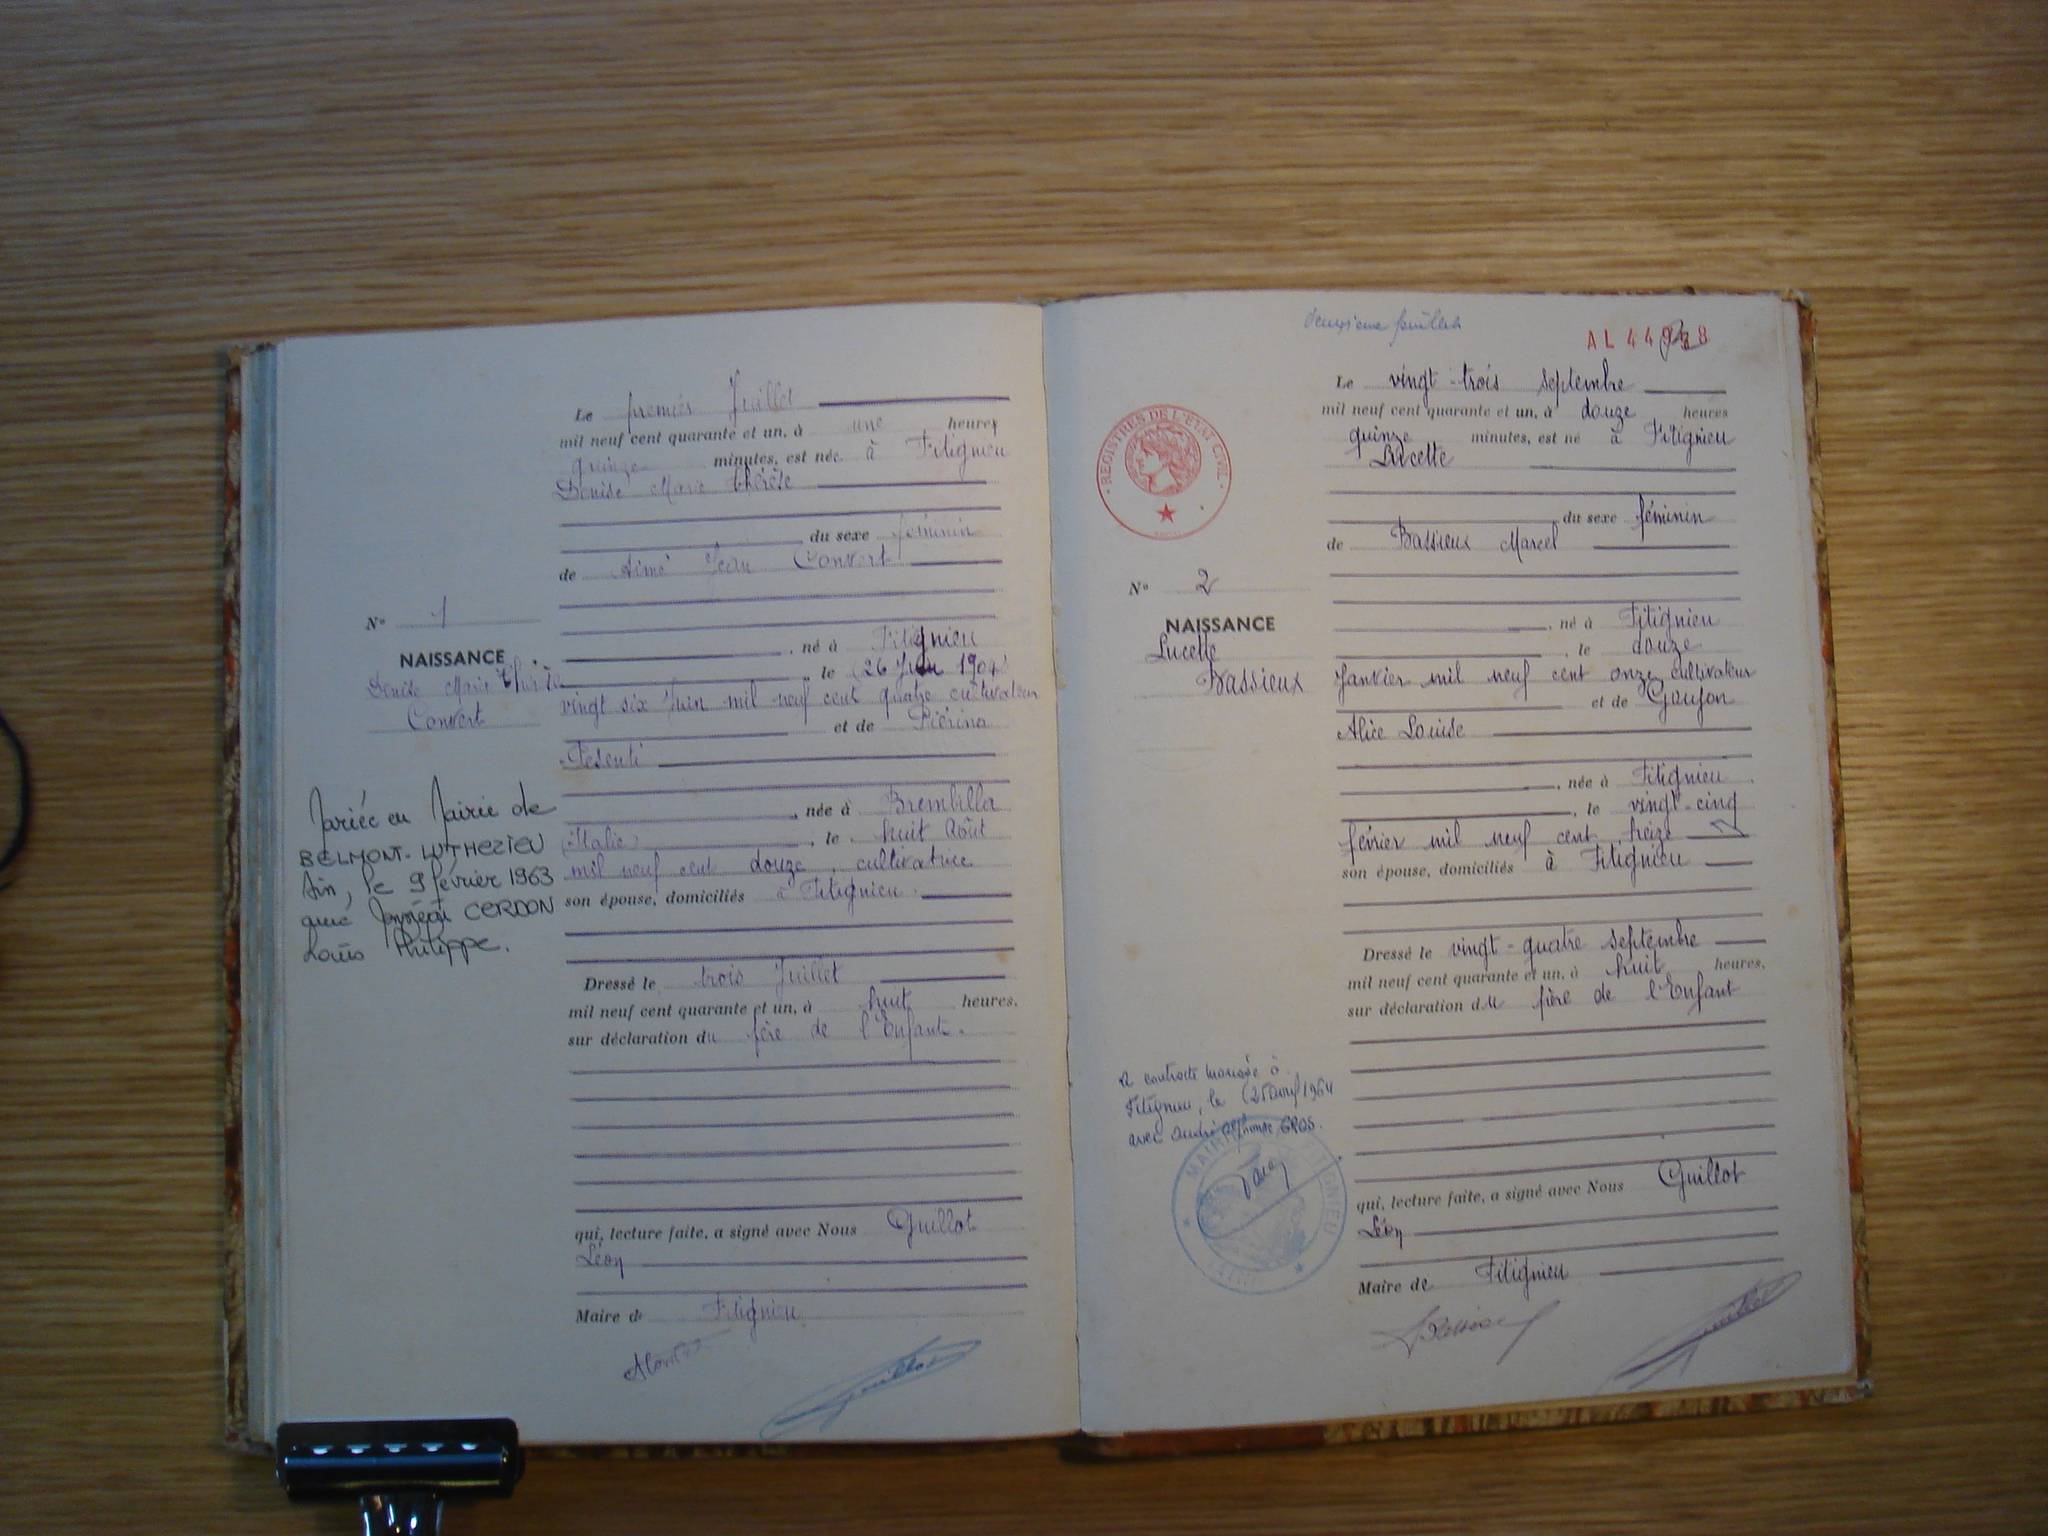 Le premier Juillet
mil neuf cent quarante et un, à une heures
quinze minutes, est née à Fitignieu
Denise Marie Thérèse
du sexe féminin
de Aimé Jean Convert
né à Fitignieu
, le (26 Juin 1904)
vingt six Juin mil neuf cent quatre cultivateur
et de Piérina
Pesenti
, née à Brembilla
(Italie) , le huit Août
mil neuf cent douze, cultivatrice
son épouse, domiciliés à Fitignieu.
Dressé le trois Juillet
mil neuf cent quarante et un, à huit heures.
sur déclaration du père de l'Enfant.
qui, lecture faite, a signé avec Nous Guillot
Léon
Maire de Fitignieu
Guillot
N° 1
NAISSANCE
Denise Marie Thérèse
Convert
Mariée en Mairie de
BELMONT-LUTHEZIEU
Ain, le 9 février 1963
avec CERDON
Louis Philippe.
deuxième feuillet
AL 44
2
REGISTRES DE L'ETAT CIVIL
Le vingt-trois septembre
mil neuf cent quarante et un, à douze heures
quinze minutes, est né à Fitignieu
Lucette
du sexe féminin
de Bassieux Marcel
, né à Fitignieu
, le douze
Janvier mil neuf cent onze cultivateur
et de Goujon
Alice Louise
, née à Fitignieu
, le vingt-cinq
février mil neuf cent treize
son épouse, domiciliés à Fitignieu
Dressé le vingt-quatre septembre
mil neuf cent quarante et un, à huit heures,
sur déclaration du père de l'Enfant
qui, lecture faite, a signé avec Nous Guillot
Léon
Maire de Fitignieu
Guillot
N° 2
NAISSANCE
Lucette
Bassieux
A contracté mariage à
Fitignieu, le 1964
avec André Alphonse GROS.
MAIRIE FITIGNIEU